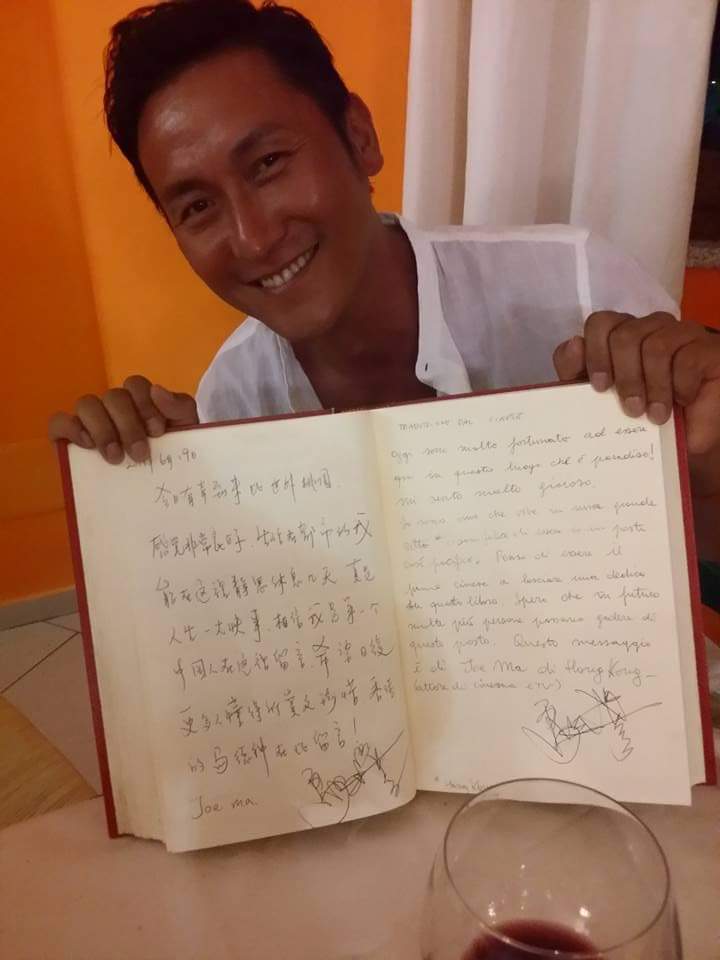 今日有幸到此世外桃園.
感覺非常良好.
能在這裡靜思休息几天 真是
人生一大快事. 相信我是第一个
中国人在這裡留言. 希望日後
更多人懂得欣賞又珍惜 香港
的马德钟在此留言!
Joe ma.
TRADUZIONE DAL CINESE
oggi sono molto fortunato ad essere
qui in questo luogo che è paradiso!
mi sento molto gioioso.
Io sono uno che vive in una grande
città*
così pacifico. Penso di essere il
primo cinese a lasciare una dedica
su questo libro. Spero che in futuro
molte più persone possano godere di
questo posto. Questo messaggio
è di Joe Ma di Hong Kong
(attore di cinema e TV)